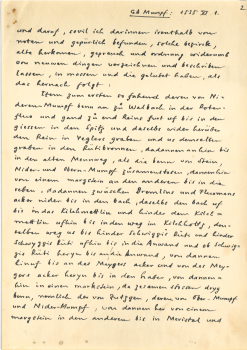 GA Mumpf : 1535 VI 1.
2
und darauf, sovil ich darinnen irenthalb von
noten und gepürlich befunden, solche bezirk,
alts harkomen, gepruch und ordnung widerumb
von nuwem dingen verzeichnen und beschriben
lassen, in massen und die gelutet haben, als
das hernach folget:
Item zum ersten so fahend deren von Ni-
deren-Mumpf benn an zu Walbach in der Rober-
 und gand zu end Reins fust uf bis in den
giessen in den spitz und daselbs wider herüber
den Rein in Veglers graben und us demselben
graben in den Rütibronnen, dadannen unhin bis
in den alten Mennweg, als die benn von Stein,
Nider- und Obern-Mumpf zusamenstossen, demnach
von einem marchstein an den anderen bis in die
reben, dadannen zwüschen Bremlins und Thermans
acker nider bis in den bach, daselbs den bach uf
bis in das Kilchmettlin und hinder dem
mettlin ufhin bis in den weg im Kilchholtz, den-
selben weg us bis hinder Schwigzis Rüti und hinder
Schwyggis Rüti ufhin bis in die Anwand und ob Schwig-
gis Rüti herzu bis an die Anwand, von dannen
hinuf bis an des Meygers acker und von des Mey-
gers acker herzu bis in den haben, von dannen
hin in einen markstein, da zesamen stossen dryg
benn, namlich der von Zutzgen, deren von Ober-Mumpf
und Nider-Mumpf, von dannen hin von einem
margstein in den anderen bis in Meristal und